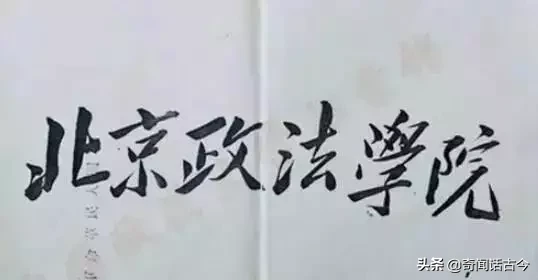 北京政法學院
头条 @奇闻话古今